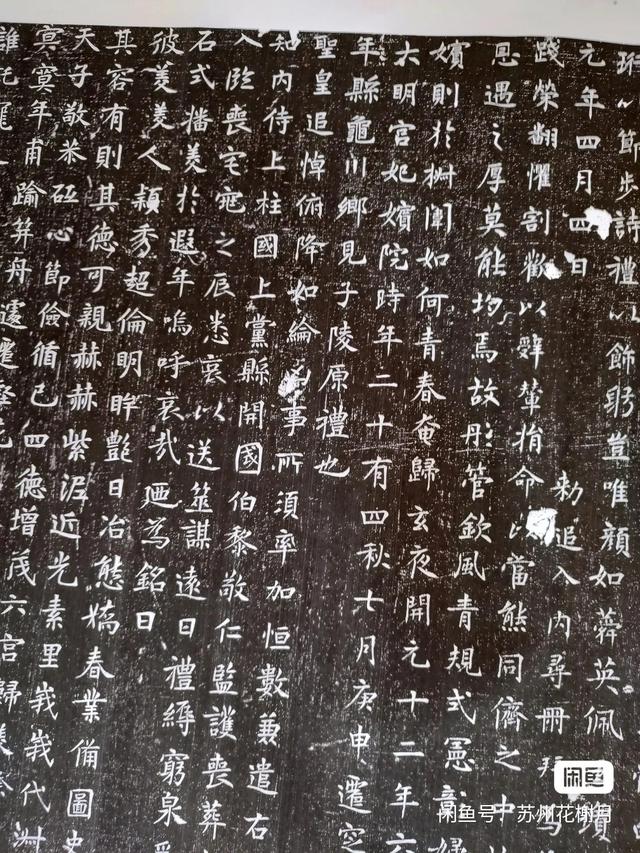 節步詩禮以飾躬豈唯顏如蕣英佩
元年四月四日敕追入內尋冊拜
踐榮翻懼割歡以辭輦捐命以當熊同儕之中
恩遇之厚莫能均焉故彤管欽風青規式憲
嬪則於椒闈如何青春奄歸玄夜開元十二年六
大明宮妃嬪院時年二十有四秋七月庚申遷窆
年縣龜川鄉見子陵原禮也
聖皇追悼俯降如綸事所須率加恒數兼遣右
知內侍上柱國上黨縣開國伯黎敬仁監護喪葬
入臨喪宅窀之辰悉哀以送筮謀遠日禮縟窮泉
石式播美於遐年嗚呼哀哉迺為銘曰
彼美美人穎秀超倫明眸豔日冶態嬌春業備圖史
其容有則其德可親赫赫紫渥近光素里峩峩代
天子敬恭砥心節儉循已四德增茂六宮歸美
寞寞年甫踰笄舟遽遷壑
閑魚
闲鱼号：苏州花榭月